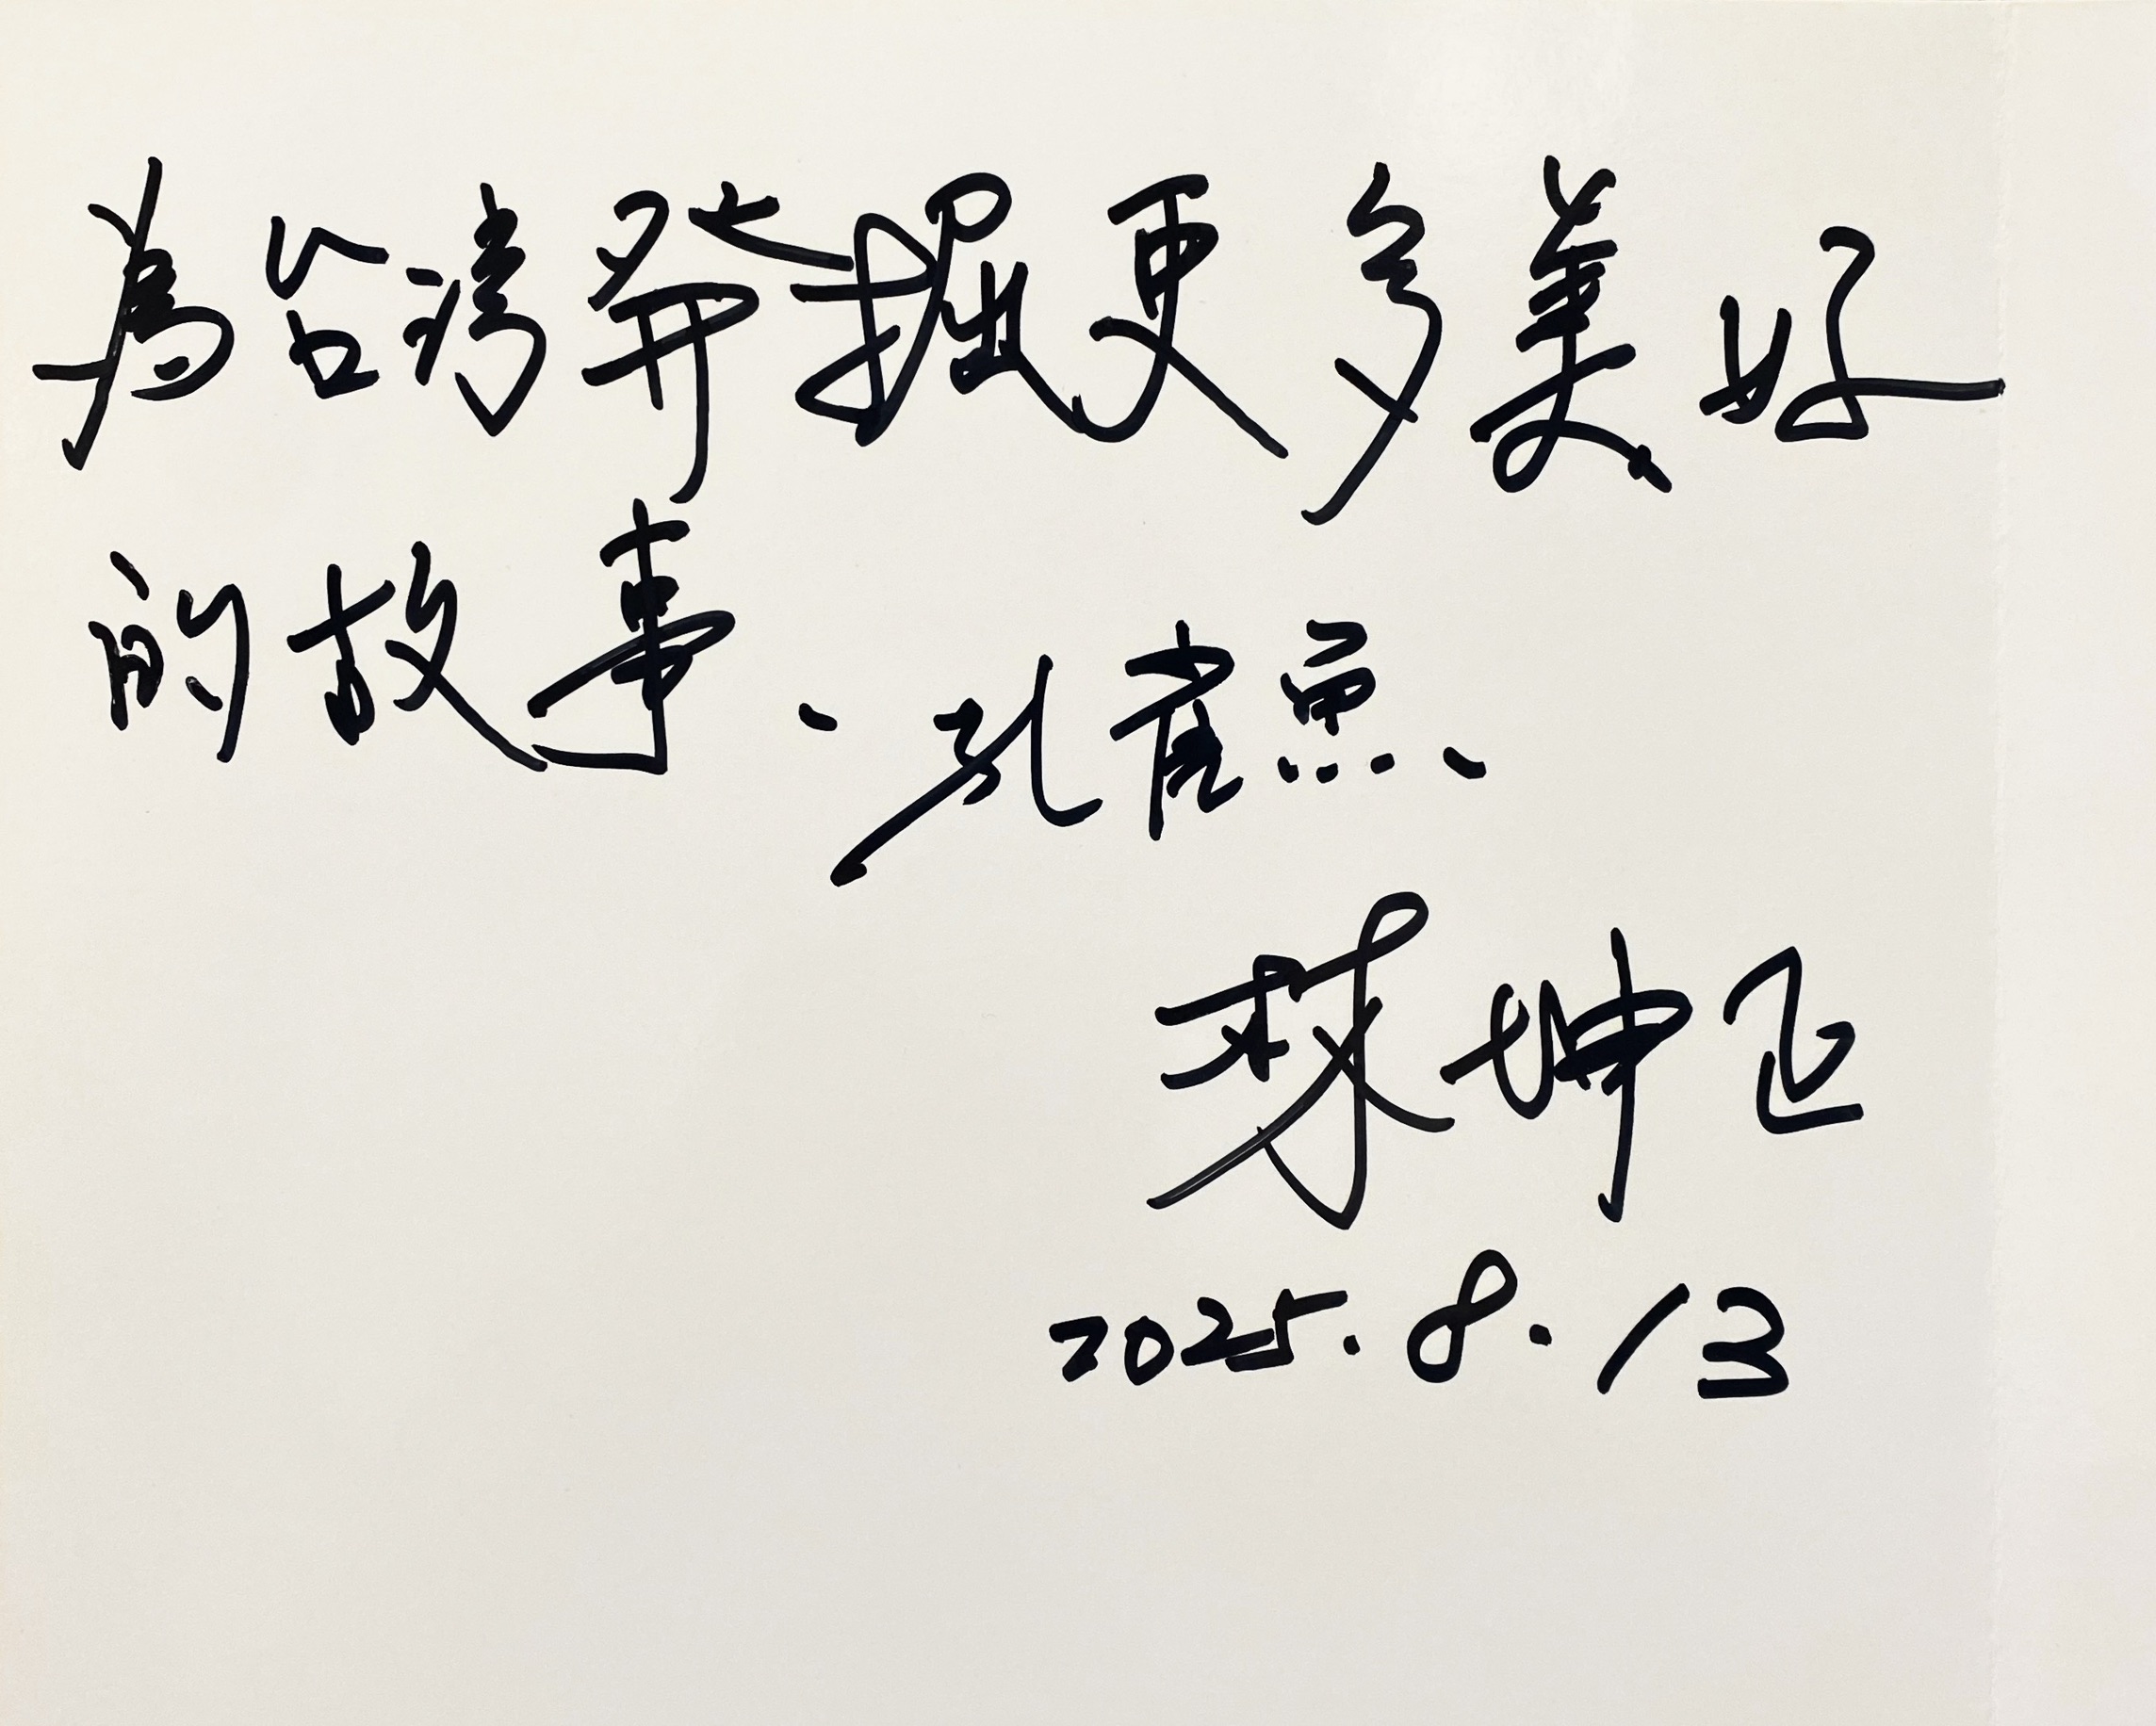 為台灣發掘更多美好
的故事.
林坤正
2025.8.13